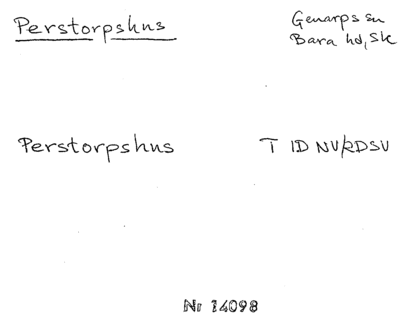 Perstorpshus
Genarps sn
Bara hd, Sk
Perstorpshus
T 1D NV/2D SV
Nr 14098